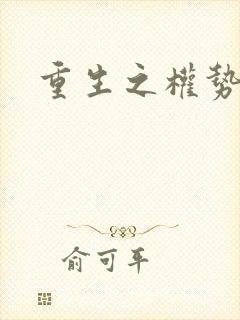 重生之權勢
俞可平